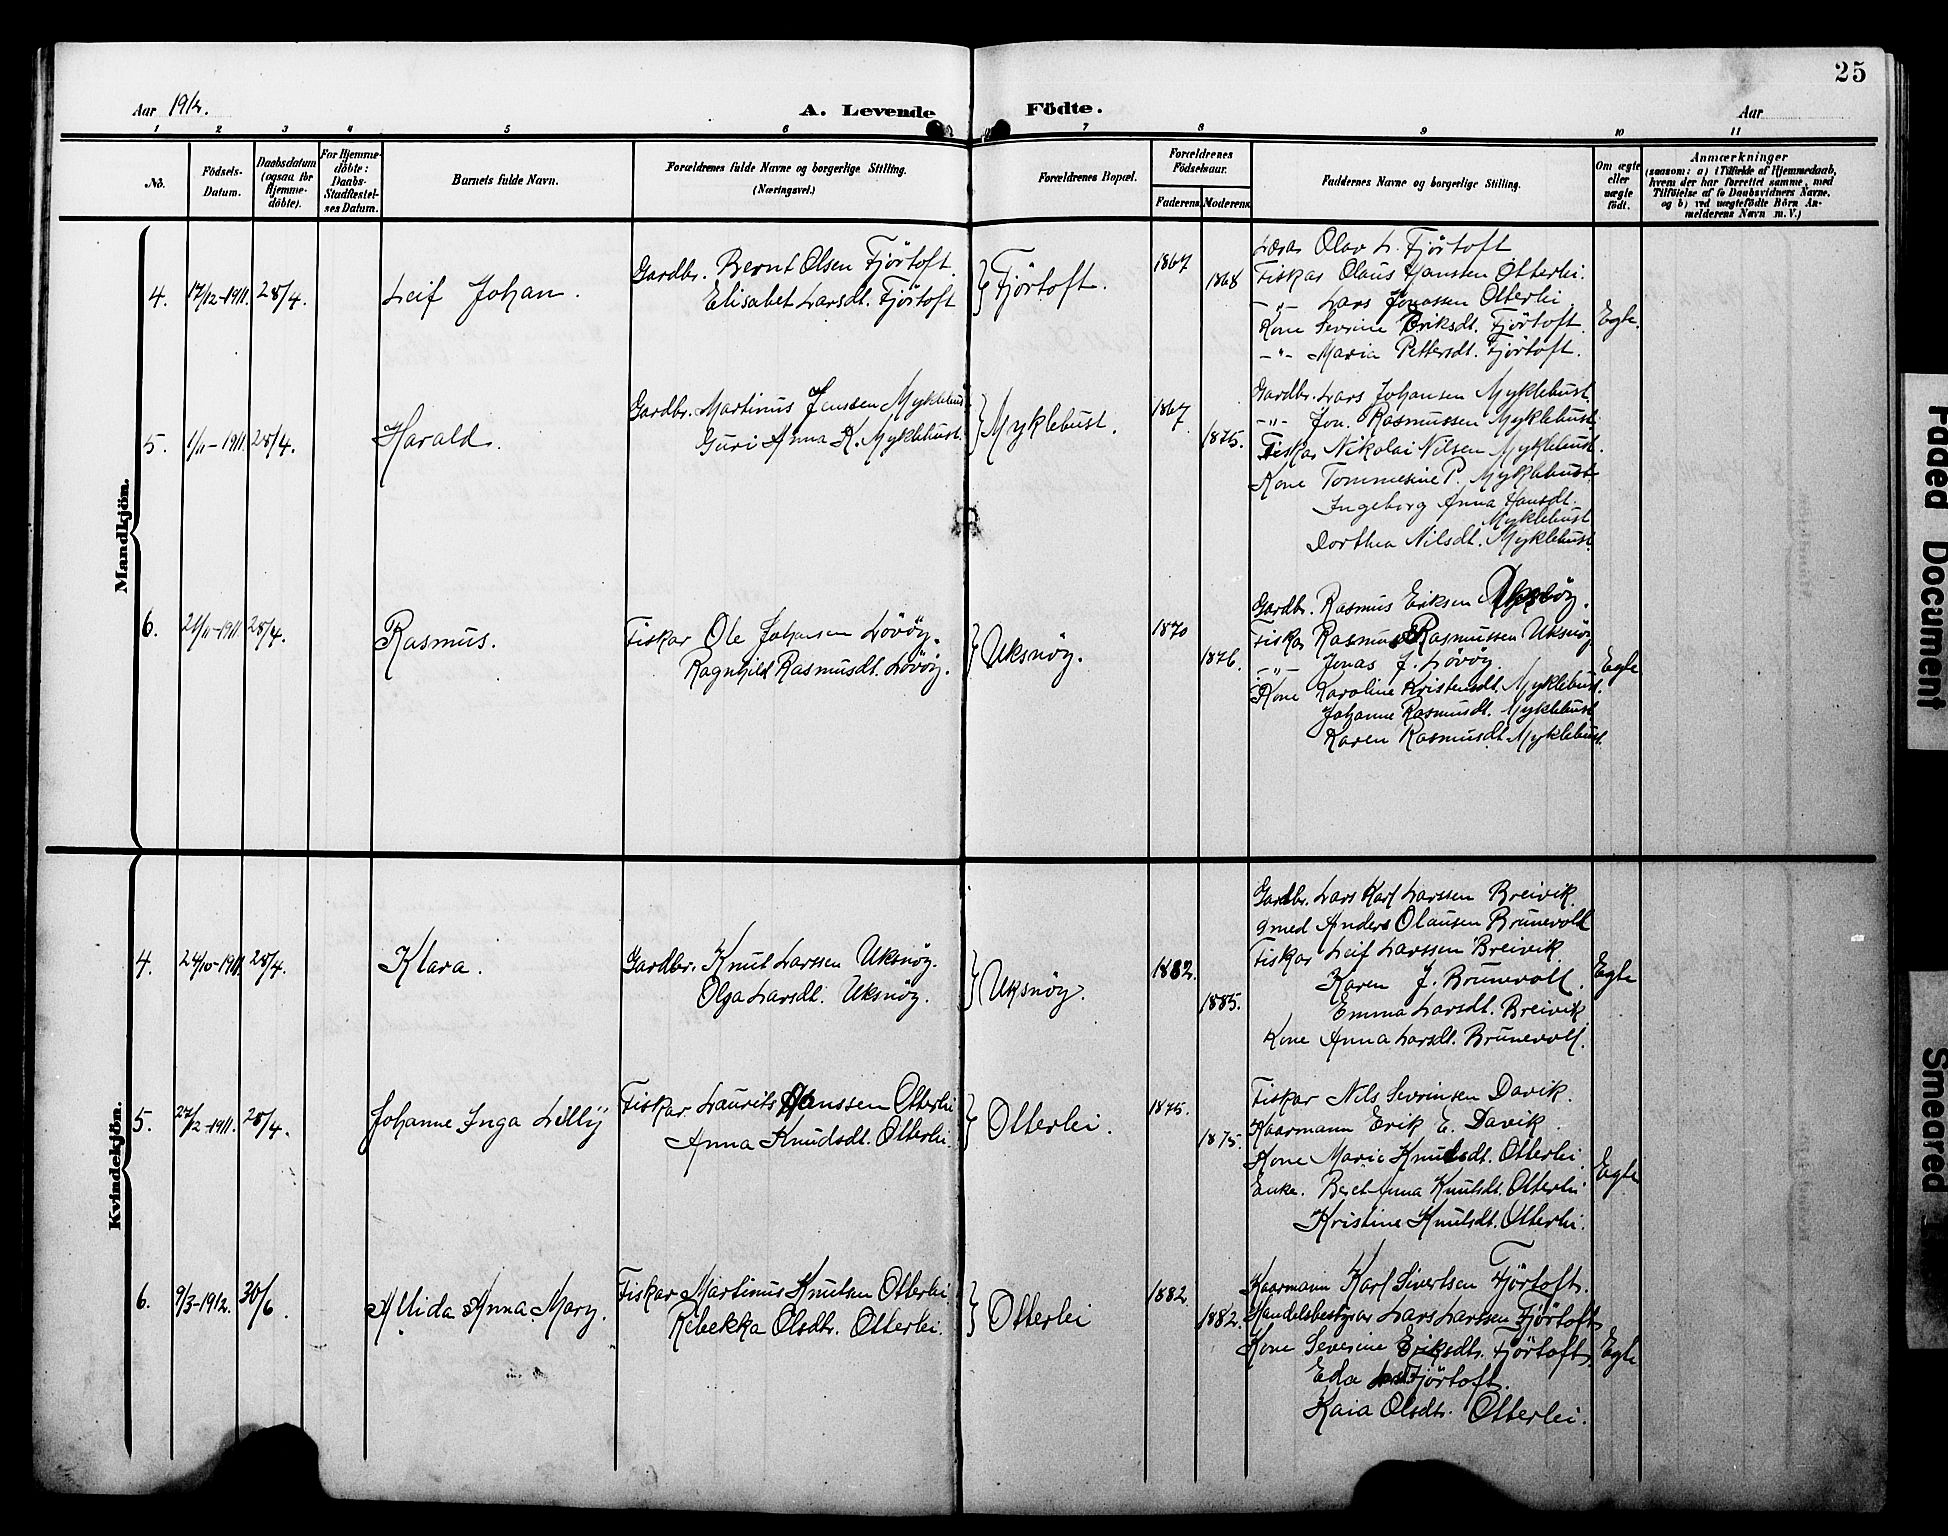 25
Aar 1912.
A. Levende Födte.
Aar
1 2 3 4 5 6 7 8 9 10 11
No.
Födsels-Datum.
Daabsdatum (ogsaa for Hjemme-döbte).
For Hjemme-döbte: Daabs-Stadfæstel-ses Datum.
Barnets fulde Navn.
Forældrenes fulde Navne og borgerlige Stilling. (Næringsvei.)
Forældrenes Bopæl.
Forældrenes Födselsaar.
Faderens. Moderens.
Faddernes Navne og borgerlige Stilling.
Om ægte eller uægte födt.
Anmærkninger
(saasom: a) i Tilfælde af Hjemmedaab,
hvem der har forrettet samme, med
Tilföielse af to Daabsvidners Navne,
og b) ved uægtefödte Börn An-
melderens Navn m. V.)
Mandkjön.
4. 17/12-1911. 28/4. Leif Johan.
Gardbr. Bernt Olsen Fjörtoft.
Elisabet Larsdt. Fjörtoft
Fjörtoft.
1867
1868
Olav L. Fjörtoft
Fiskar Olaus Hanssen Otterlei.
-"- Lars Jonassen Otterlei.
Kone Sevrine Eriksdt. Fjörtoft.
-"- Maria Pettersdt. Fjörtoft.
Egte.
5. 1/11-1911. 28/4. Harald.
Gardbr. Martinus Jenssen Myklebust
Guri Anna K. Myklebust.
Myklebust.
1867
1875.
Gardbr. Lars Johansen Myklebust.
-"- Jon. Rasmussen Myklebust.
Fiskar Nikolai Nilsen Myklebust.
Kone Tommesine P. Myklebust.
Ingeborg Anna Hansdt.
Myklebust
Dorthea Nilsdt. Myklebust.
6. 21/11-1911 28/4. Rasmus.
Fiskar Ole Johansen Lövöy.
Ragnhild Rasmusdt. Lövöy.
Uksnöy.
1870
1876.
Gardbr. Rasmus Eriksen Uksnöy.
Fiskar Rasmus Rasmussen Uksnöy
-"- Jonas J. Lövöy.
Kone Karoline Kristensdt. Myklebust.
Johanne Rasmusdt. Myklebust
Karen Rasmusdt. Myklebust.
Egte
Kvindekjön.
4. 24/10-1911. 28/4. Klara.
Gardbr. Knut Larssen Uksnöy.
Olga Larsdt. Uksnöy.
Uksnöy.
1882.
1885.
Gardbr. Lars Karl Larssen Breivik.
Anders Olausen Brunevoll
Fiskar Leif Larssen Breivik.
Karen J. Brunevoll.
Emma Larsdt. Breivik
Kone Anna Larsdt. Brunevoll.
Egte
5. 27/12-1911. 28/4. Johanne Inga Lilly
Fiskar Laurits Hanssen Otterlei
Anna Knudsdt. Otterlei.
Otterlei.
1875.
1875.
Fiskar Nils Sevrinsen Davik.
Kaarmann Erik E. Davik.
Kone Marie Knutsdt. Otterlei.
Enke. Beret-Anna Knutsdt. Otterlei
Kristine Knutsdt. Otterlei.
Egte
6. 9/3-1912. 30/6. Alida Anna Mary.
Fiskar Martinus Knutsen Otterlei.
Rebekka Olsdtr. Otterlei.
Otterlei
1882.
1882.
Kaarmann Karl Sivertsen Fjörtoft.
Handelsbestyrar Lars Larssen Fjörtoft
Kone Severine Eriksdtr. Fjörtoft
Eda Fjörtoft.
Kaia Olsdtr. Otterlei.
Egte
Faded Document
Smeared